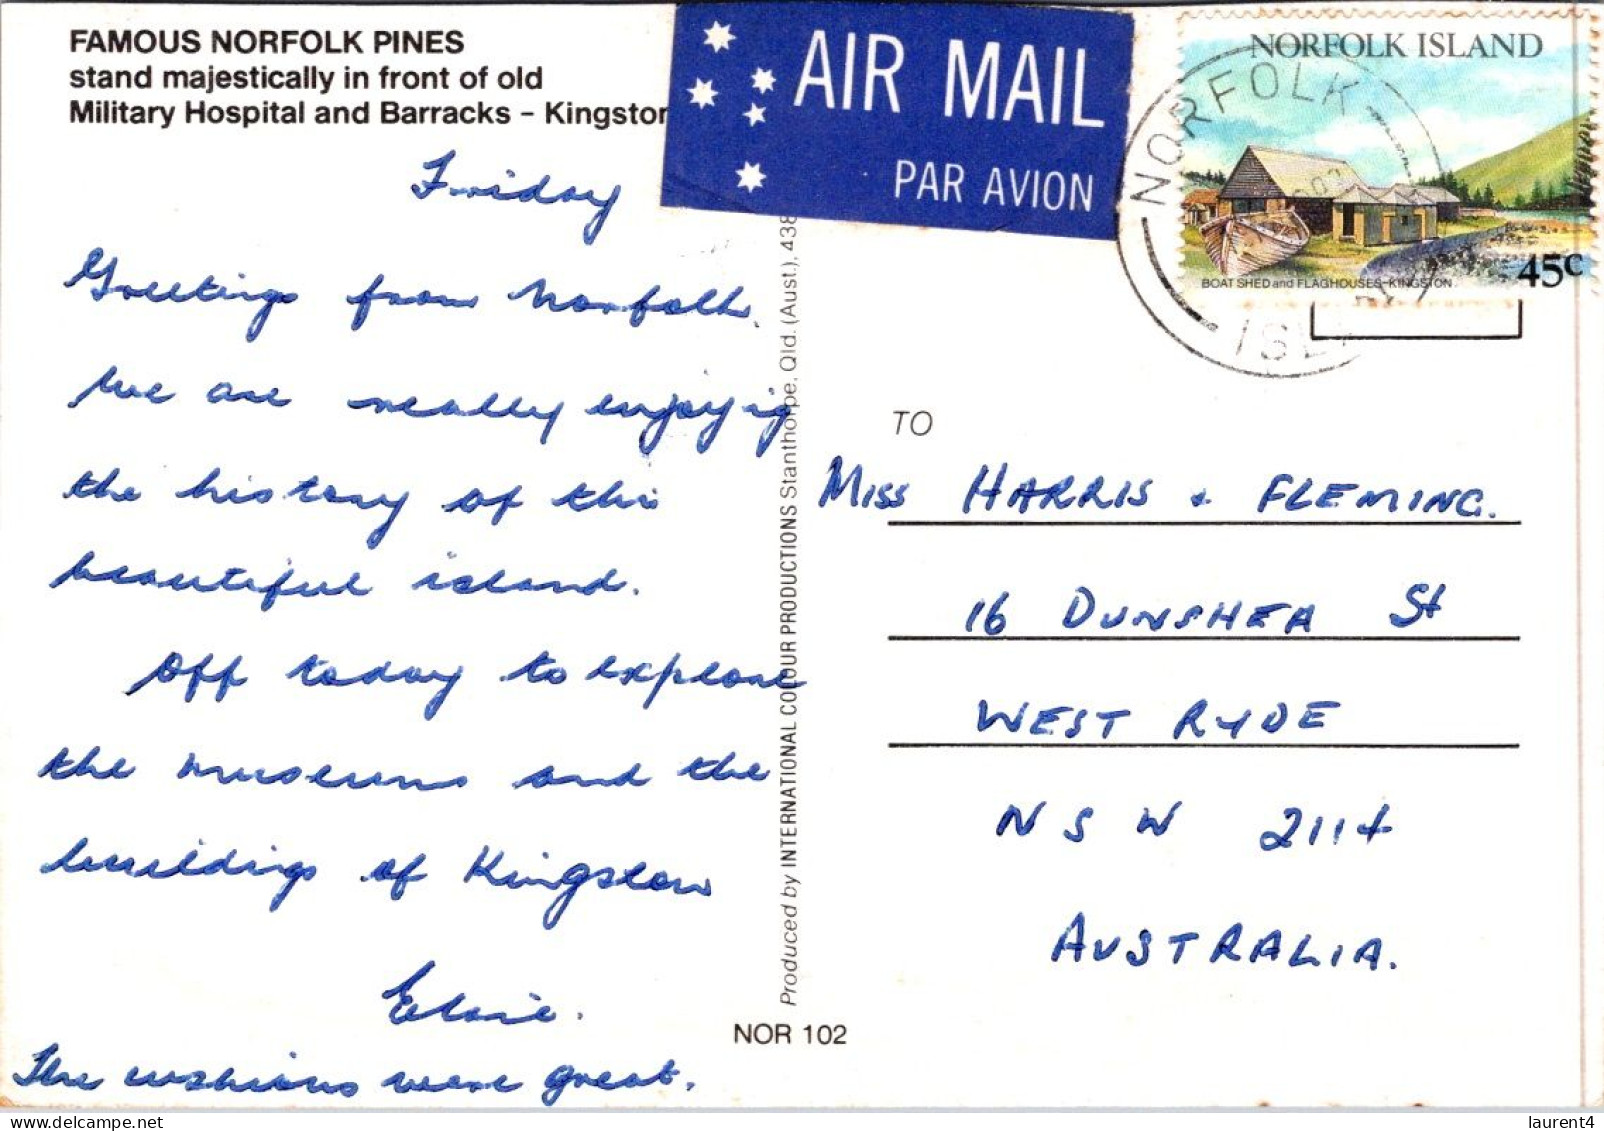 FAMOUS NORFOLK PINES
stand majestically in front of old
Military Hospital and Barracks – Kingston
AIR MAIL
PAR AVION
NORFOLK ISLAND
BOAT SHED and FLAGHOUSES–KINGSTON
45c
NORFOLK
ISL
Friday
Greetings from Norfolk.
We are really enjoying
the history of this
beautiful island.
Off today to explore
the museums and the
buildings of Kingston
Elsie.
The cushions were great.
Produced by INTERNATIONAL COLOUR PRODUCTIONS Stanthorpe, Qld. (Aust.), 438
NOR 102
TO
MISS HARRIS & FLEMING.
16 DUNSHEA St
WEST RYDE
N S W 2114
AUSTRALIA.
laurent4